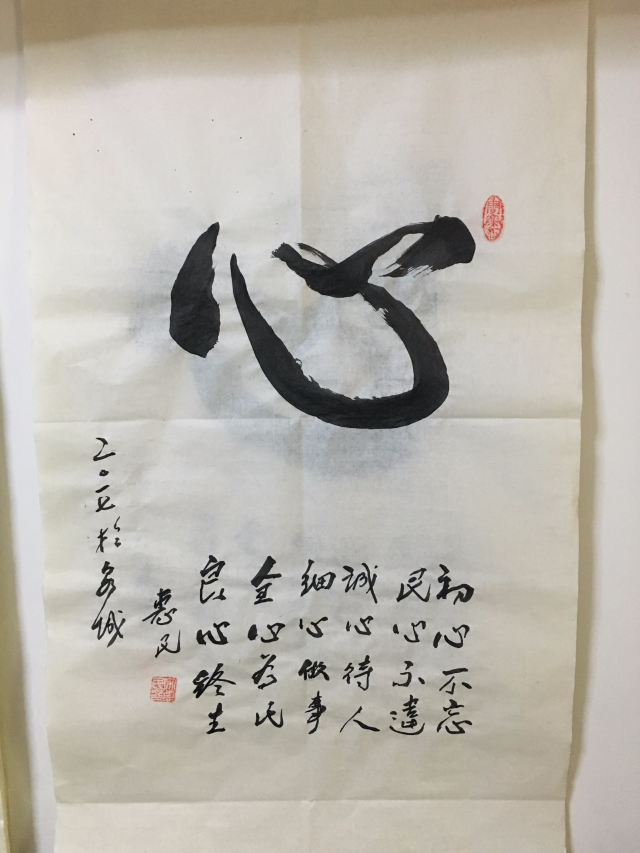 心
初心不忘
民心不違
誠心待人
細心做事
全心为民
良心終生
惠民
二〇一五於泉城